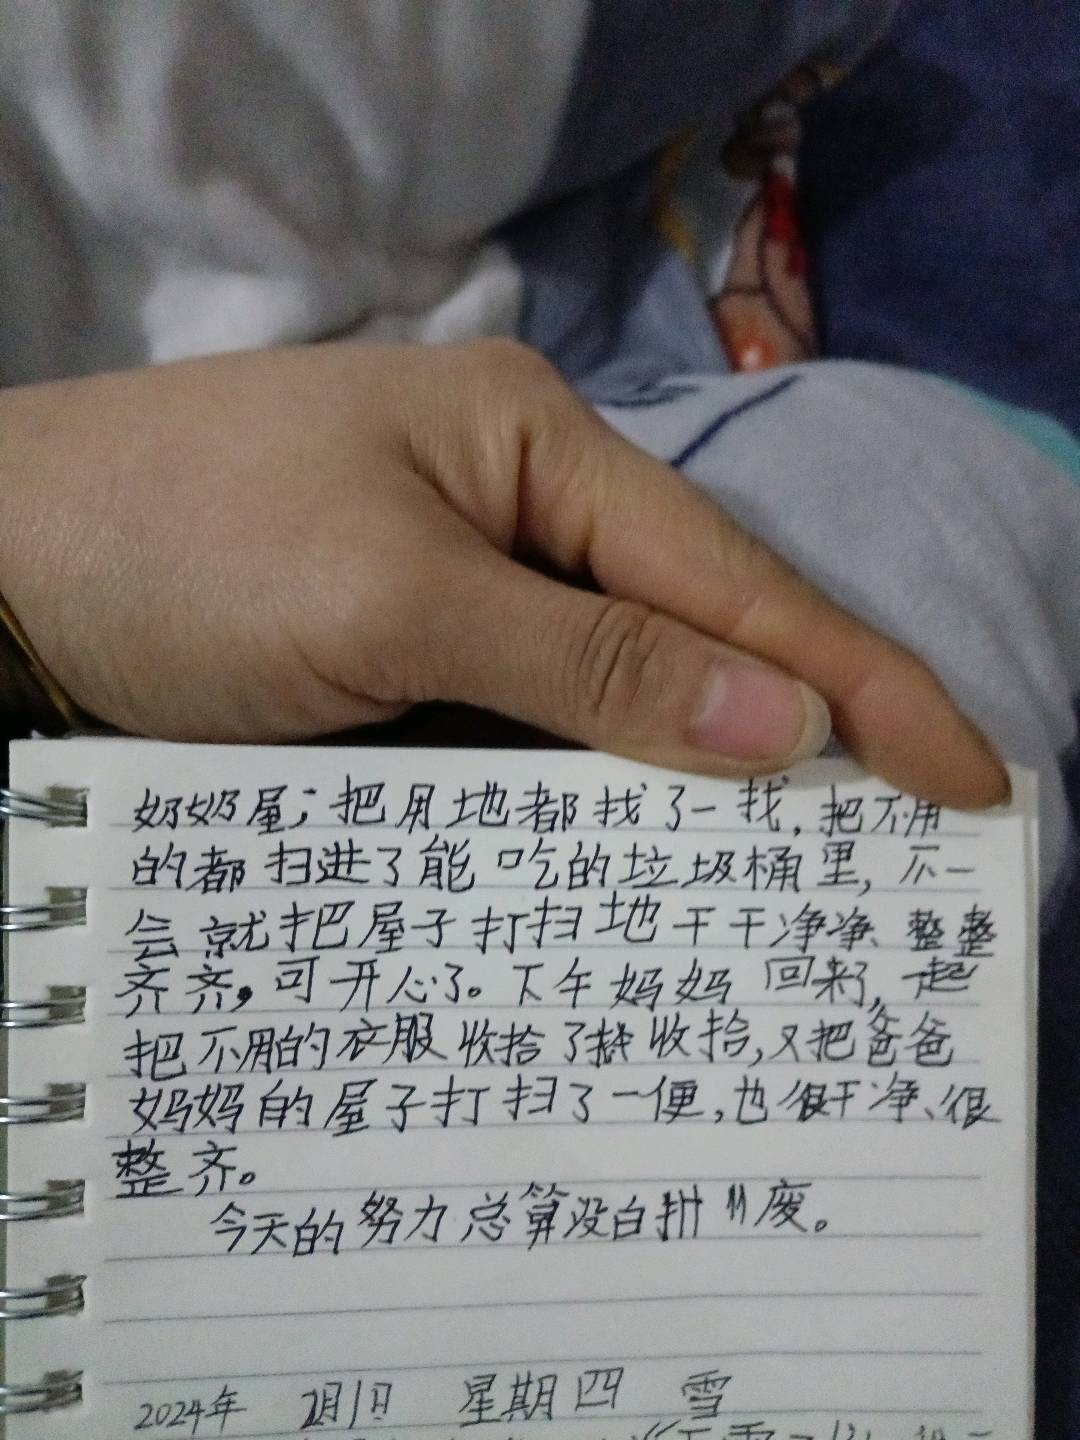 奶奶屋；把用地都找了一找，把不用
的都扫进了能吃的垃圾桶里，不一
会就把屋子打扫地干干净净、整整
齐齐，可开心了。下午妈妈回来了，一起
把不用的衣服收拾了收拾，又把爸爸
妈妈的屋子打扫了一便，也很干净、很
整齐。
今天的努力总算没白废。
2024年 2月1日 星期四 雪